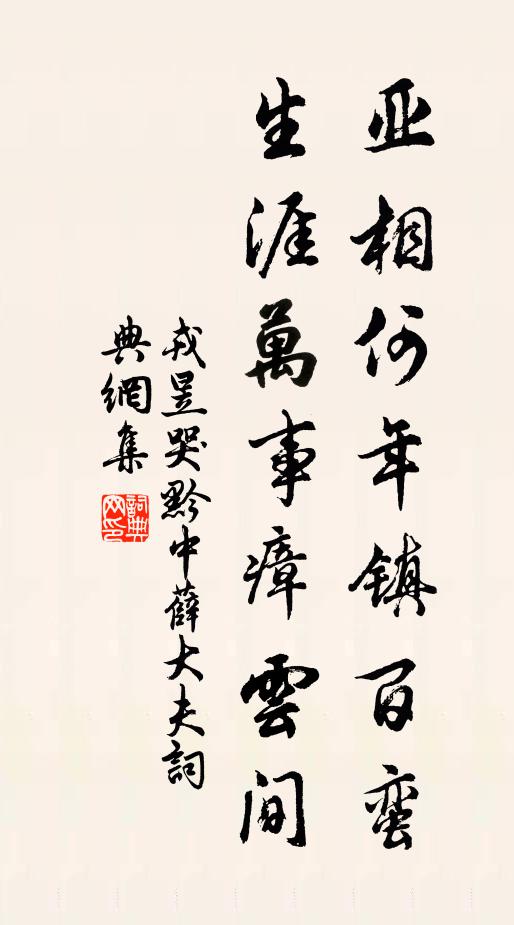 亚相何年镇百蛮
生涯萬事瘴雲间
戎昱哭黔中薛大夫詞
典網集
詞典网印